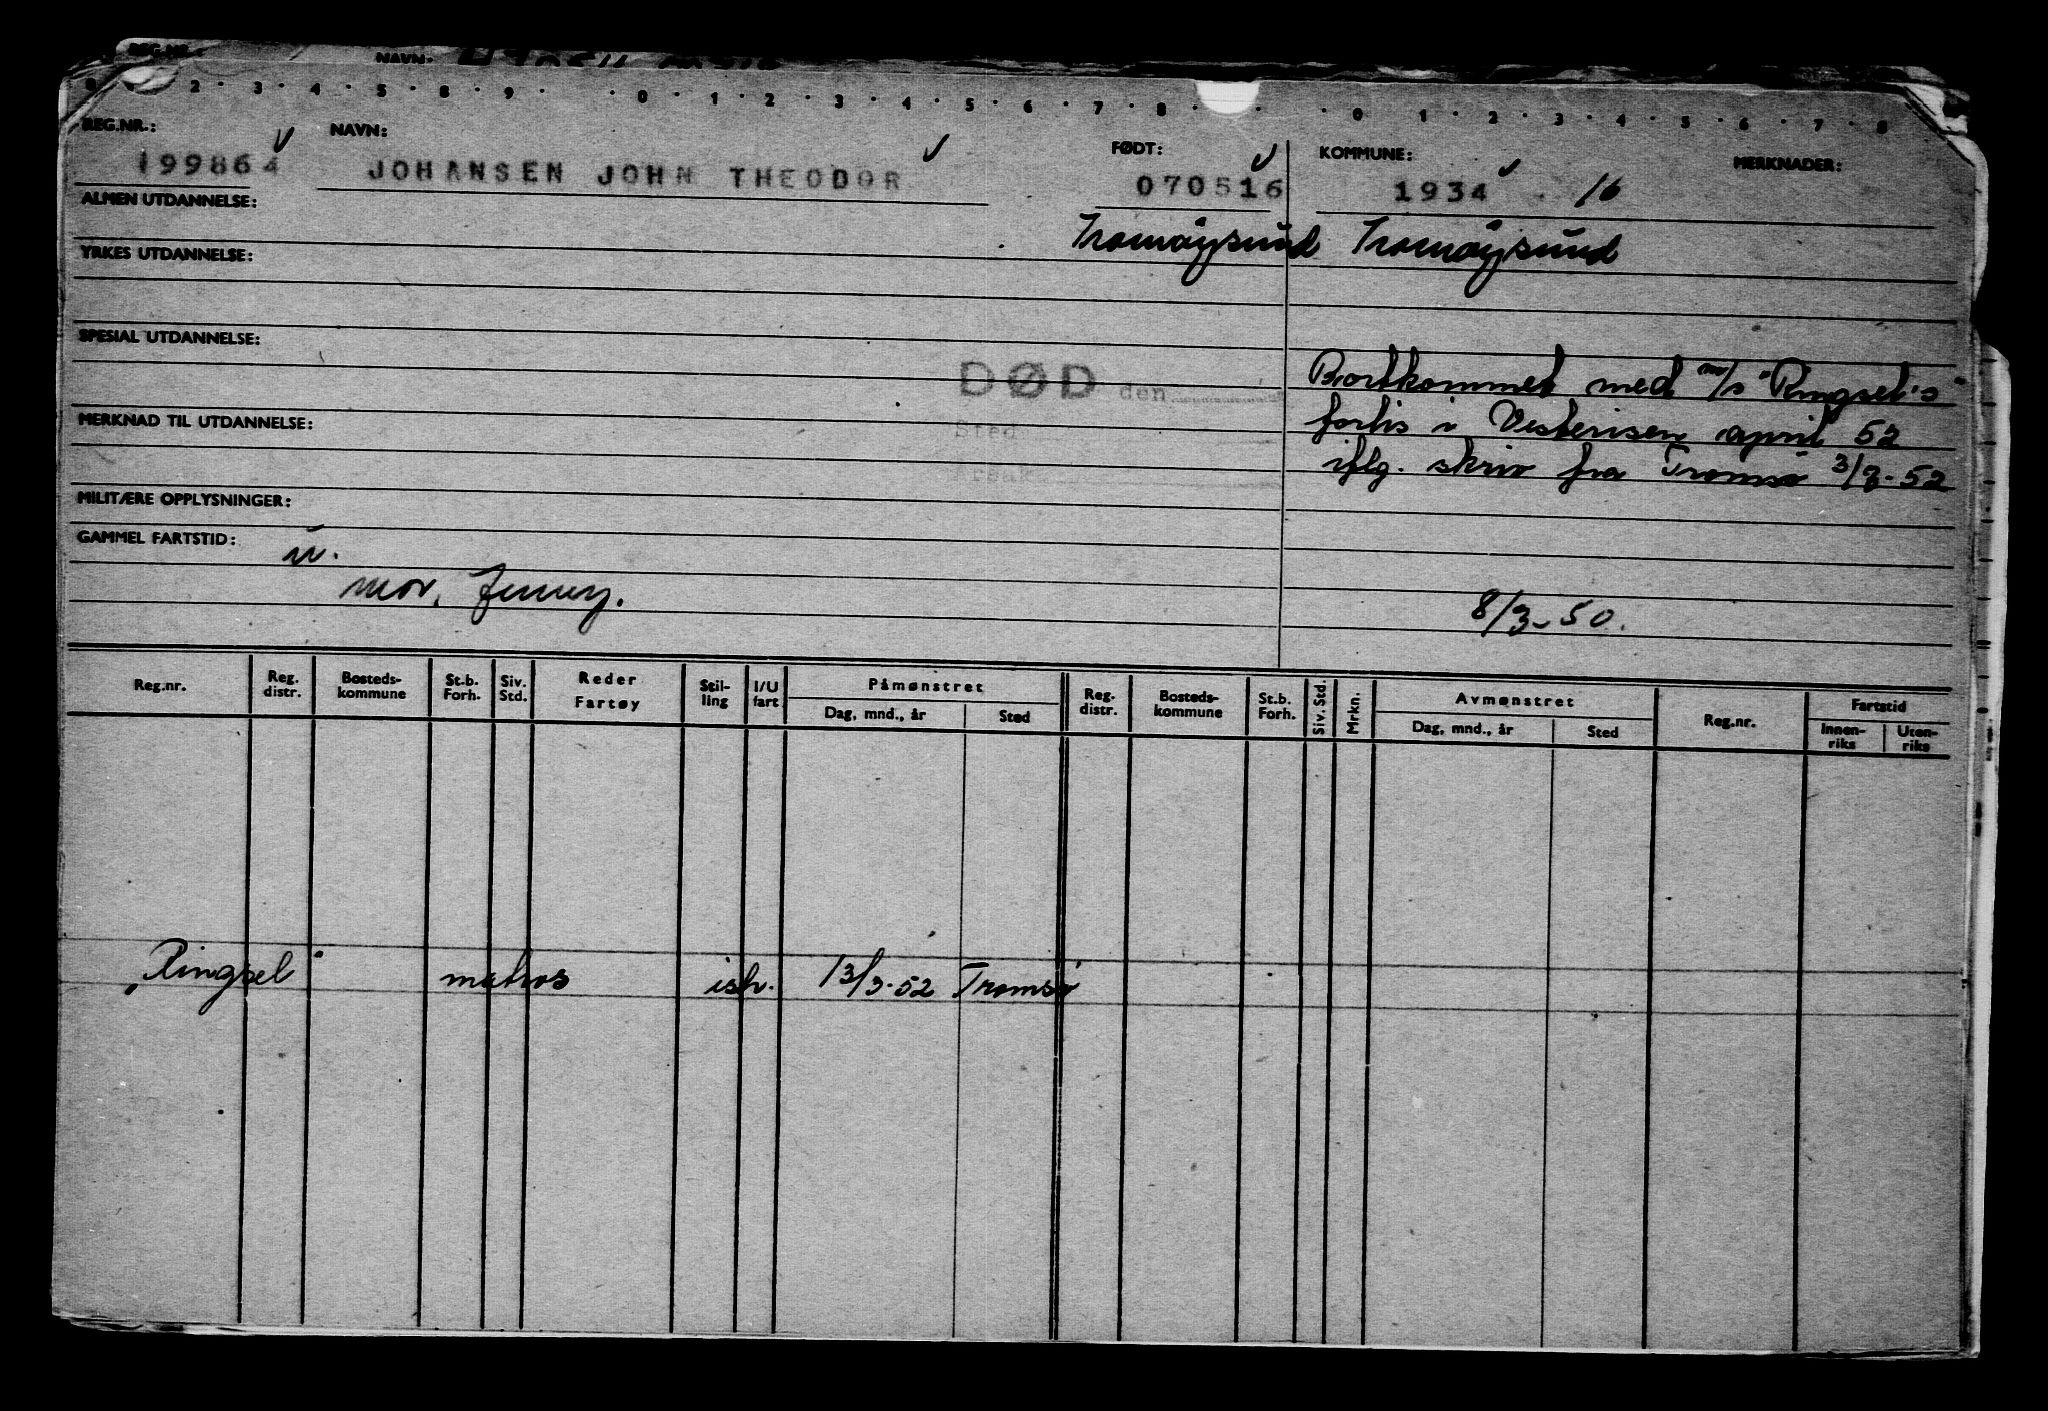 REG.NR.: NAVN:
2 · 3 · 4 · 5 · 8 · 9 · · 0 · 1 · 2 · 3 · 4 · 5 · 6 · 7 · 8 · · 0 · 1 · 2 · 3 · 4 · 5 · 6 · 7 · 8
REG.NR.: NAVN: FØDT: KOMMUNE: MERKNADER:
199864 JOHANSEN JOHN THEODOR 070516 1934 16
ALMEN UTDANNELSE:
Tromøysund Tromøysund
YRKES UTDANNELSE:
SPESIAL UTDANNELSE:
DØD den
Bortkommet med m/s "Ringsel's"
Sted
MERKNAD TIL UTDANNELSE:
forlis i Vesterisen april 52
iflg. skriv fra Tromsø 3/7-52
MILITÆRE OPPLYSNINGER:
GAMMEL FARTSTID:
u.
mor, Jenny.
8/3-50.
Reg.nr. Reg. distr. Bosteds- kommune St.b. Forh. Siv. Std. Reder Fartøy Stil- ling I/U fart Påmønstret Dag, mnd., år Sted Reg. distr. Bosteds- kommune St.b. Forh. Siv. Std. Mrkn. Avmønstret Dag, mnd., år Sted Reg.nr. Fartstid Innen- riks Uten- riks
"Ringsel" matros ish. 13/3-52 Tromsø